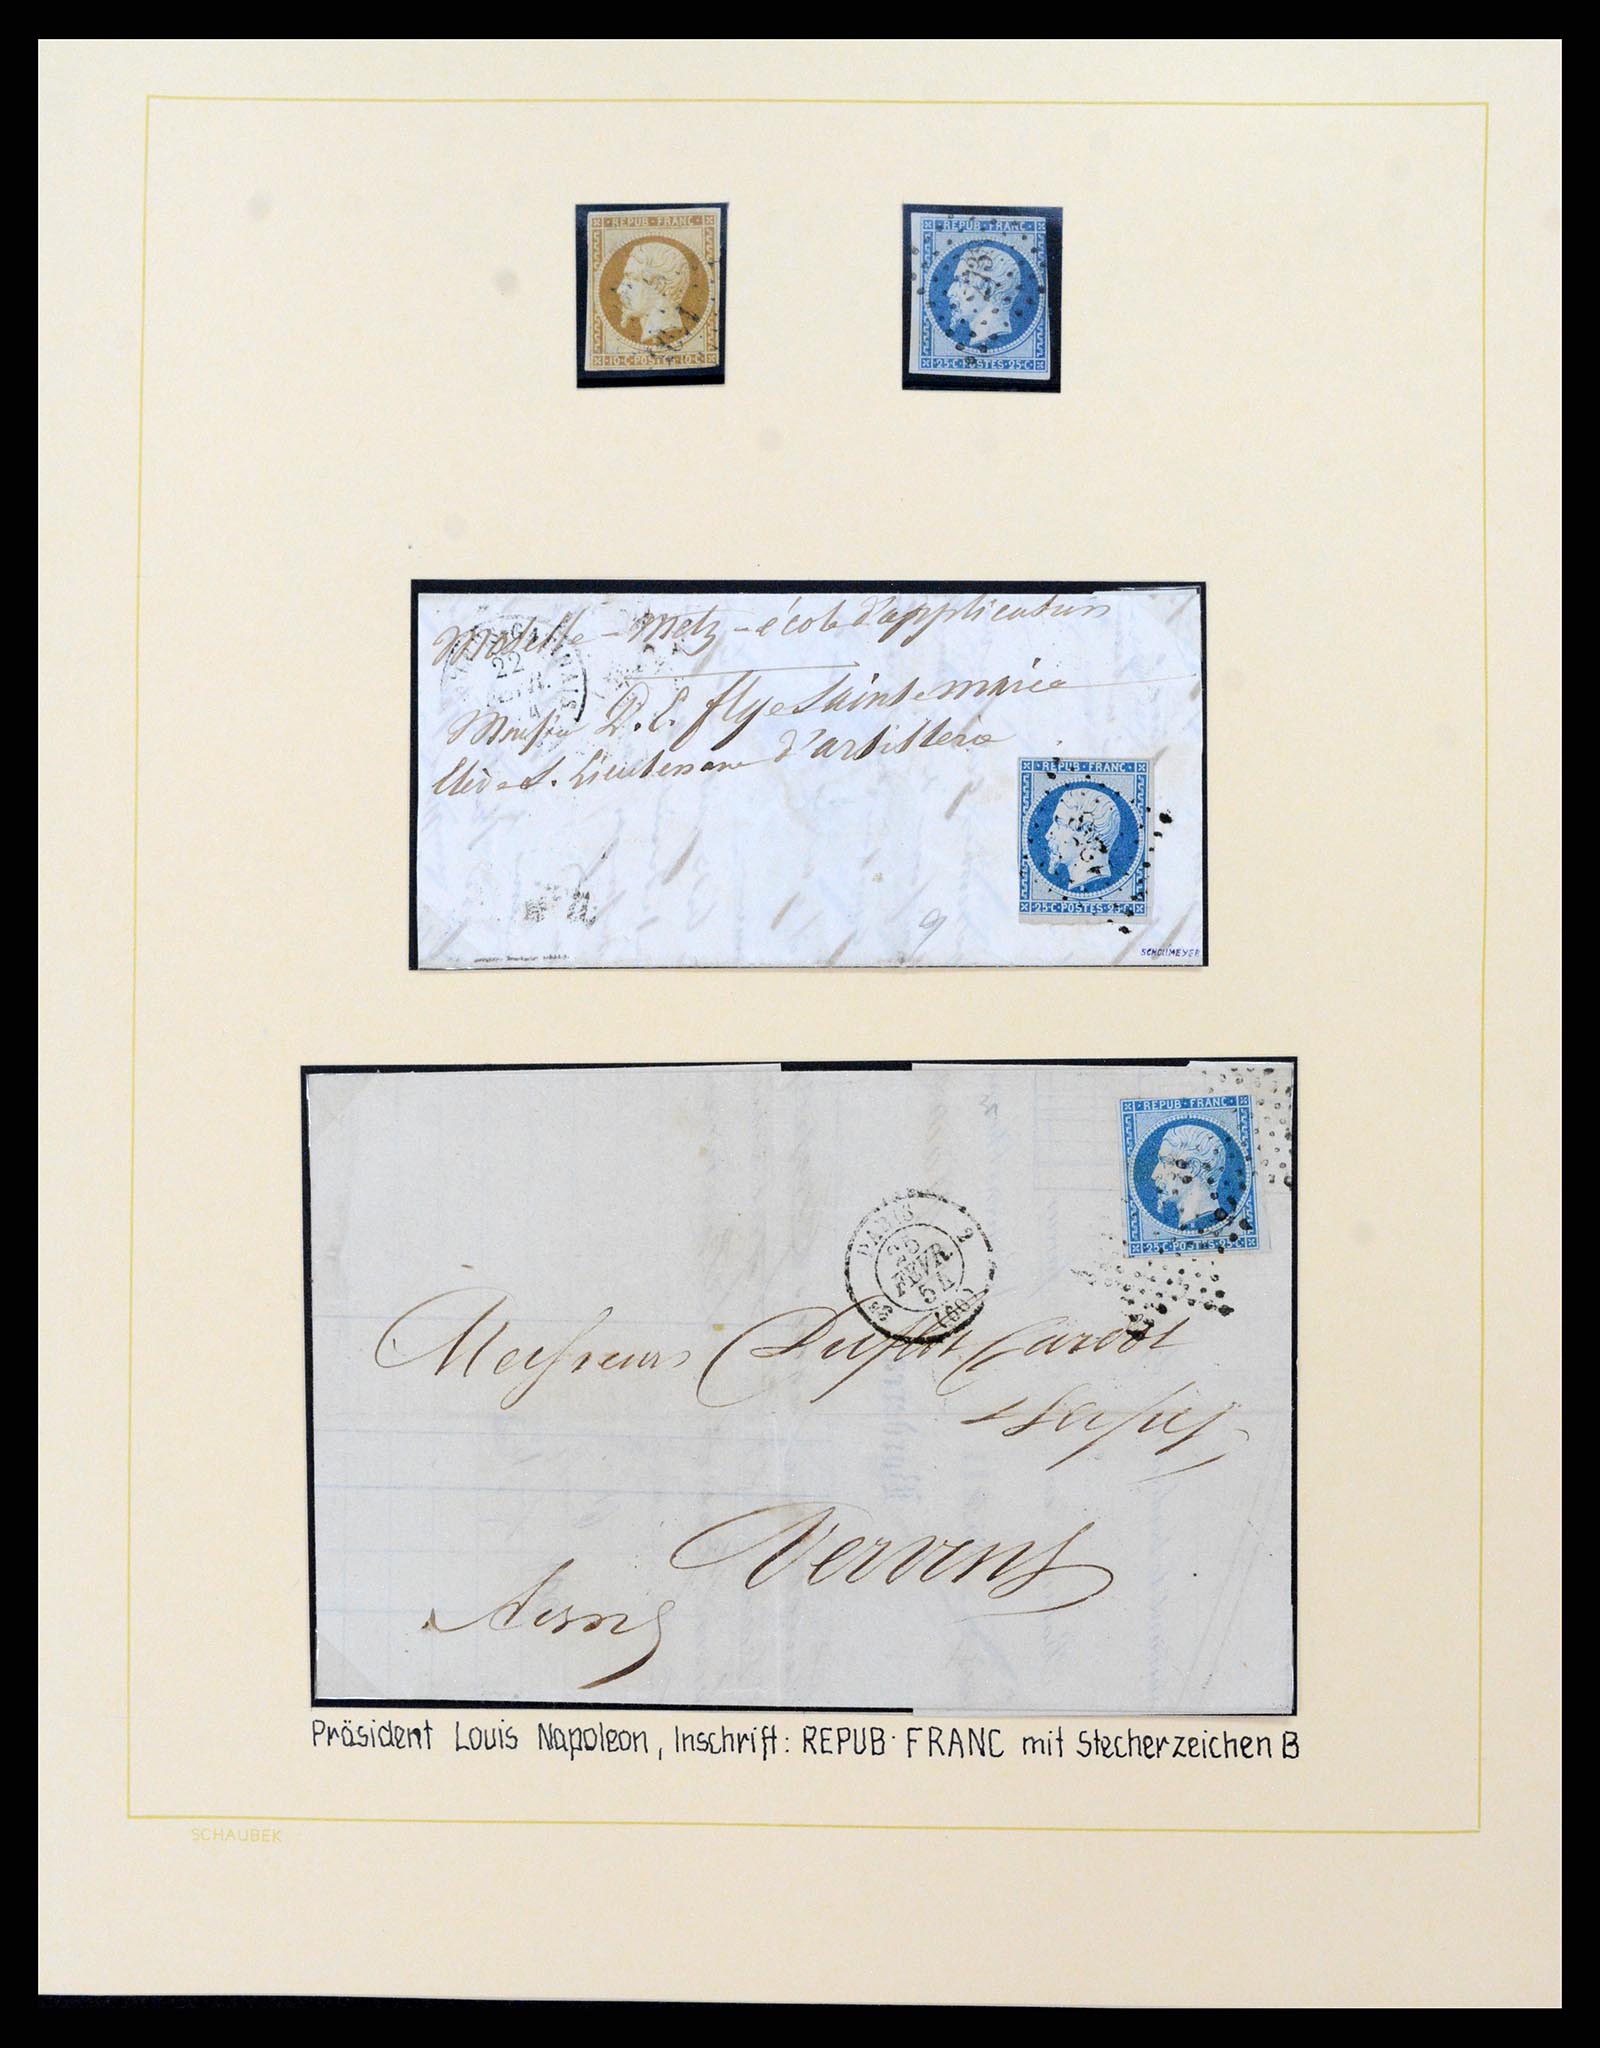 REPUB · FRANC
10·C·POSTES·10·C
REPUB · FRANC
25·C·POSTES·25·C
Moselle - Metz - école d'application
22
Monsieur D. E. flye Sainte marie
Elève S. Lieutenant d'artillerie
REPUB · FRANC
25·C·POSTES·25·C
9
REPUB · FRANC
25·C·POSTES·25·C
PARIS 2
25
FEVR.
54
(60)
Messieurs
Vervins
Aisne
Präsident Louis Napoleon, Inschrift: REPUB · FRANC mit Stecherzeichen B
SCHAUBEK